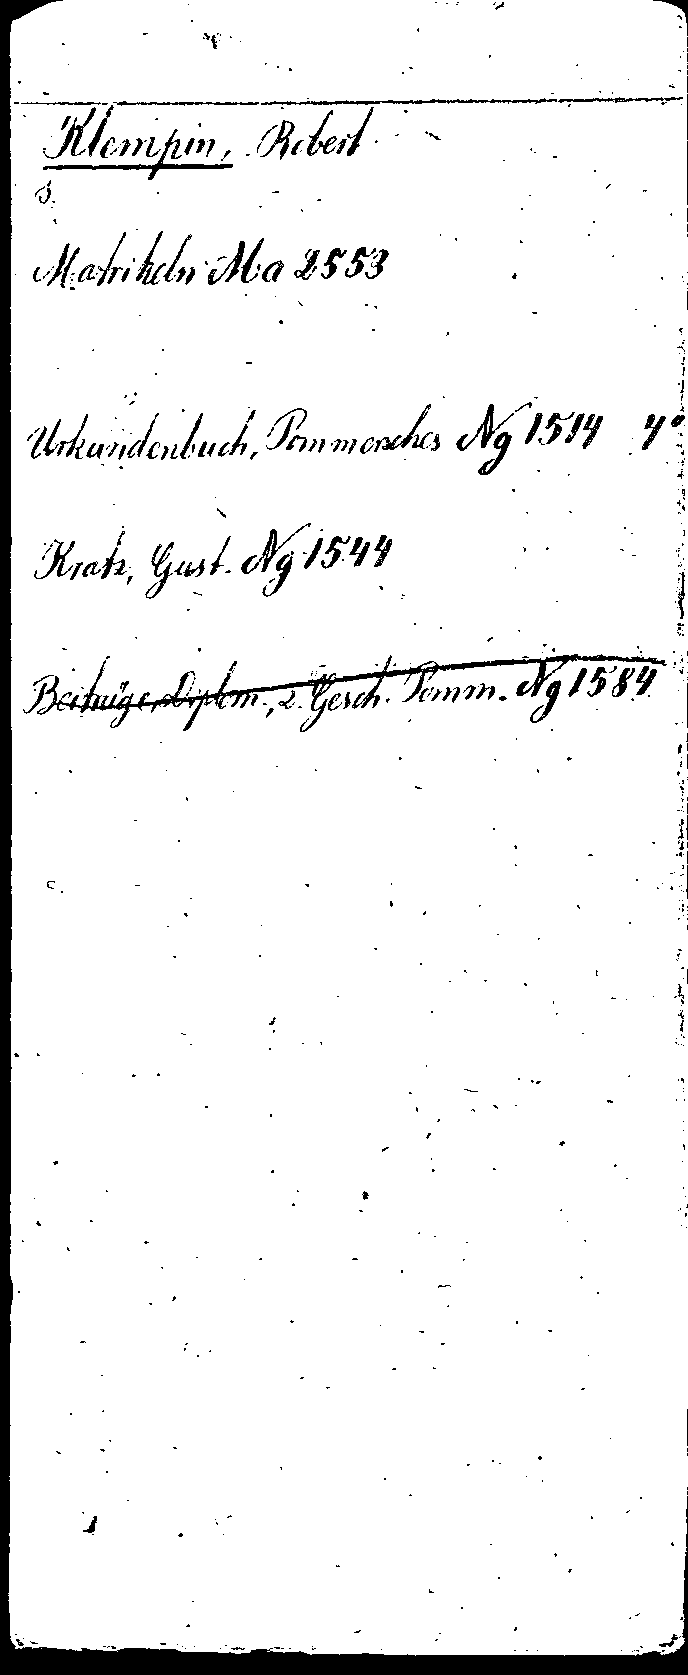 Klempin, Robert
s.
Matrikeln Ma 2553
Urkundenbuch, Pommersches Ng 1514 4°
Kratz, Gust. Ng 1544
Beiträge, Diplom., z. Gesch. Pomm. Ng 1584